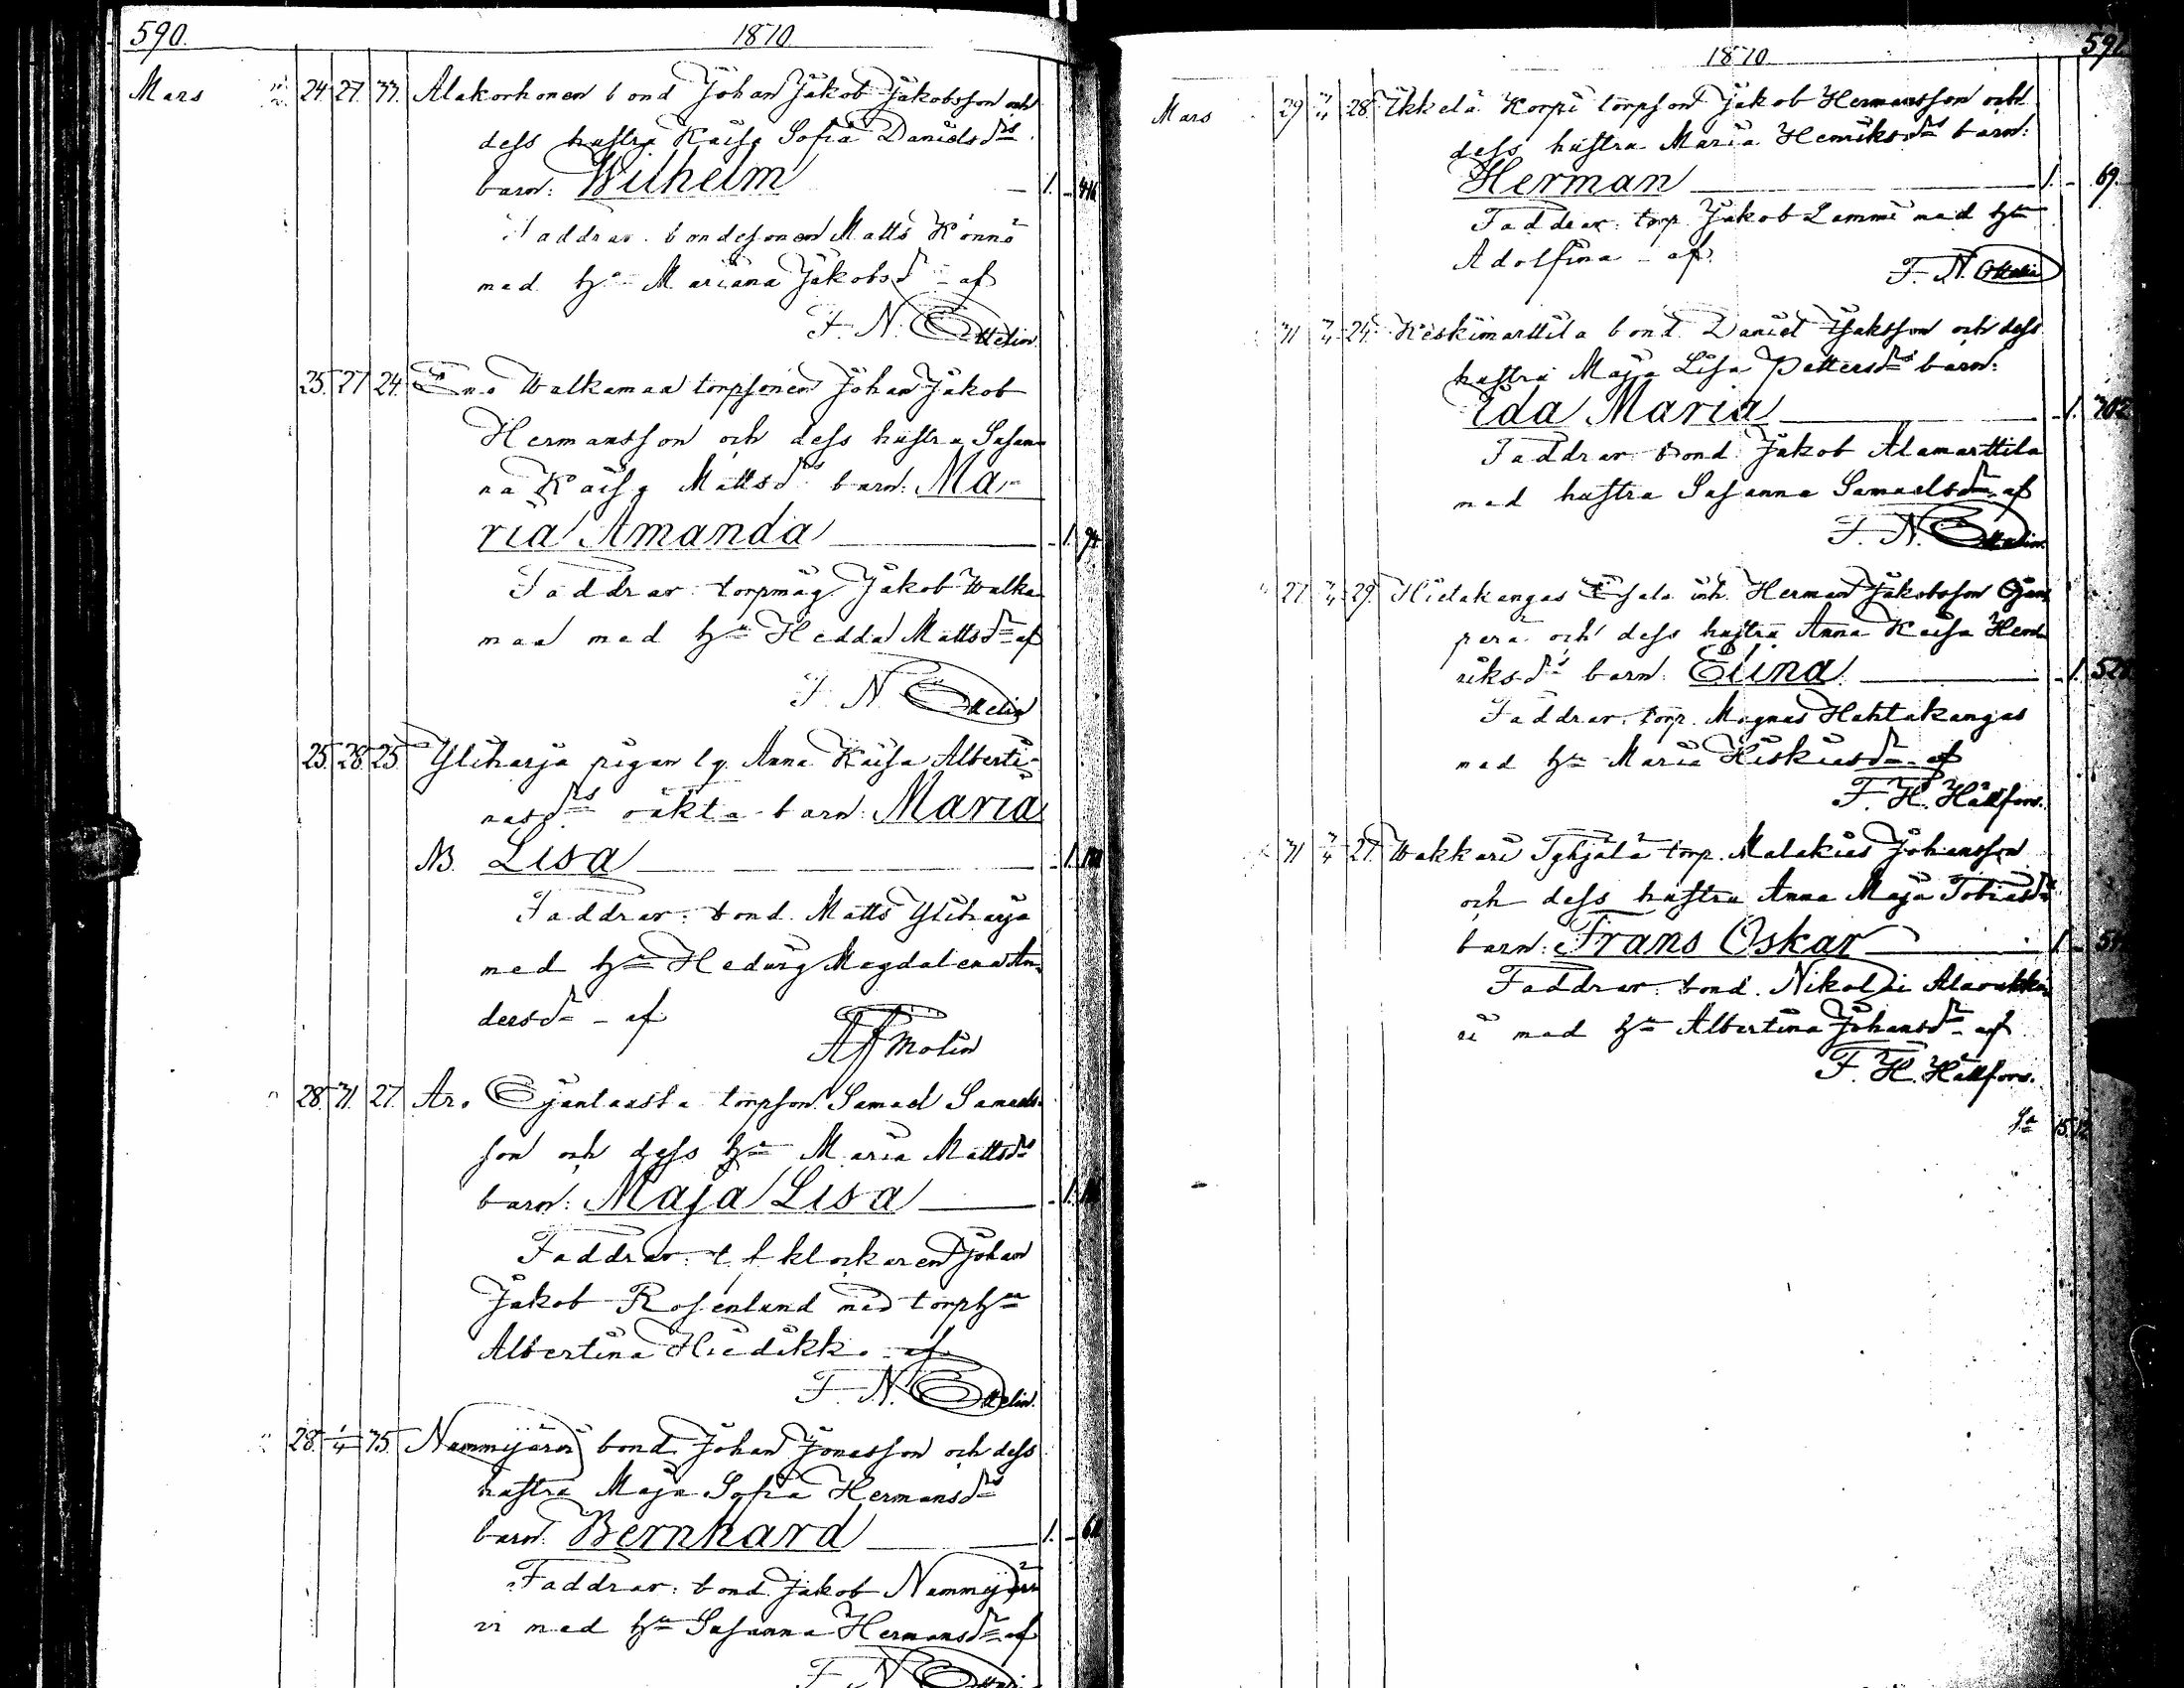 590. 1870.
Mars 24. 27. 33. Alakorhonen bond Johan Jakob Jakobsson och
dess hustru Kaisa Sofia Danielsdrs
barn: Wilhelm 1.
Faddrar: bondesonen Matts Könnö
med hu Mariana Jakobsdr af
F. N. Ottelin.
25. 27. 24. Walkamaa torpsonen Johan Jakob
Hermansson och dess hustru Susan-
na Kaisa Mattsdrs barn: Ma-
ria Amanda 1.
Faddrar: torpmåg Jakob Walka-
maa med hu Hedda Mattsdr af
F. N. Ottelin
25. 28. 25. Yliharja pigan lg. Anna Kaisa Alberti-
nasdrs oäkta barn: Maria
NB. Lisa 1.
Faddrar: bond. Matts Yliharja
med hu Hedvig Magdalena An-
dersdr - af
Molin
28. 31. 27. Aro Ojantausta torpson. Samuel Samuels-
son och dess hu Maria Mattsdrs
barn: Maja Lisa 1.
Faddrar: t. f. klockaren Johan
Jakob Rosenlund med torphu
Albertina Hiedikko - af
F. N. Ottelin.
28. 1/4 35. Nummijärvi bond. Johan Jonasson och dess
hustru Maja Sofia Hermansdrs
barn: Bernhard 1.
Faddrar: bond. Jakob Nummijär-
vi med hu Susanna Hermansdr af
F. N. Ottelin
1870. 591.
Mars 29 3/4 28. Ikkelä Korpi torpson Jakob Hermansson och
dess hustru Maria Henriksdrs barn:
Herman 1. 69.
Faddrar: torp. Jakob Lammi med hu
Adolfina - af
F. N. Ottelin
31 3/4 24. Keskimarttila bond. Daniel Isaksson och dess
hustru Maja Lisa Pettersdrs barn:
Ida Maria 1. 302
Faddrar: bond. Jakob Alamarttila
med hustru Susanna Samuelsdr af
F. N. Ottelin.
27 3/4 29. Hietakangas inh. Herman Jakobsson Ojan-
perä och dess hustru Anna Kaisa Hen-
riksdrs barn: Elina 1.
Faddrar: torp. Magnus Hahtakangas
med hu Maria Hiskiasdr - af
F. H. Hällfors.
31 3/4 27. Wakkuri torp. Malakias Johansson
och dess hustru Anna Maja Tobiasdrs
barn: Frans Oskar 1.
Faddrar: bond. Nikolai Alavakku-
ri med hu Albertina Johansdr - af
F. H. Hällfors.
Sa 15.